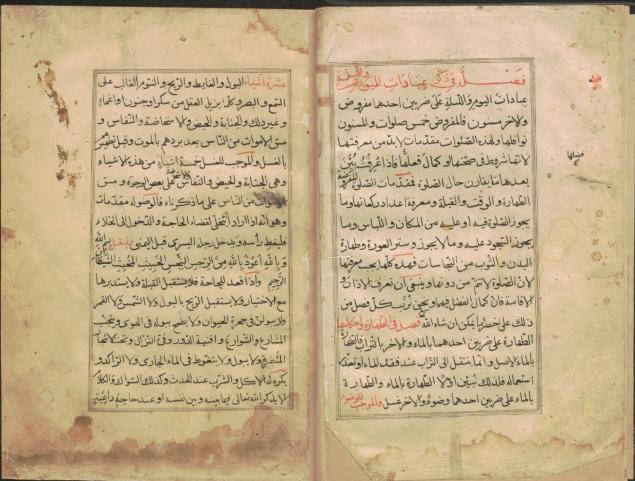 فصل في ذكر عبادات اليوم والليلة
عبادات اليوم والليلة على ضربين احدهما مفروض
والاخر مسنون فالمفروض خمس صلوات والمسنون
نوافلها ولهذه الصلوات مقدمات لابد من معرفتها
لانها شروط في صحتها او كمال فعلها فاذا عرفت نبين
بعدها ما يقارن حال الصلوة فمقدمات الصلوة
الطهارة والوقت والقبلة ومعرفة اعداد ركعاتها وما
يجوز الصلوة فيه او عليه من المكان واللباس وما
يجوز السجود عليه وما لا يجوز وستر العورة وطهارة
البدن والثوب من النجاسات فهذه كلها يجب معرفتها
لان الصلوة لا تتم من دونها وينبغي ان نعرف الاذان و
الاقامة فان كمال الفضل فيهما ونحن نرتب كل فصل من
ذلك على اخصر ما يمكن ان شاء الله فصل في الطهارة واحكامها
الطهارة على ضربين احدهما بالماء والاخر بالتراب فالطهارة
بالماء الاصل وانما ينتقل الى التراب عند فقد الماء او تعذر
استعماله فلذلك نبين اولا الطهارة بالماء والطهارة
بالماء على ضربين احدهما وضوء والاخر غسل فالموجب للوضوء
عشرة اشياء البول والغايط والريح والنوم الغالب على
السمع والبصر وكلما يزيل العقل من سكر او جنون او اغماء
وغير ذلك والجنابة والحيض والاستحاضة والنفاس و
مس الاموات من الناس بعد بردهم بالموت وقبل تطهيرهم
بالغسل والموجب للغسل خمسة اشياء من هذه الاشياء
وهي الجنابة والحيض والنفاس على بعض الوجوه ومس
من الناس على ما ذكرناه فالوضوء له مقدمات
وهو انه اذا اراد التخلي لقضاء الحاجة والدخول الى الخلاء
فليغط رأسه ويدخل رجله اليسرى قبل اليمنى وليقل بسم الله
وبالله اعوذ بالله من الرجس النجس الخبيث المخبث الشيطان
الرجيم واذا قعد للحاجة فلا يستقبل القبلة ولا يستدبرها
مع الاختيار ولا يستقبل الريح بالبول ولا الشمس ولا القمر
ولا يبولن في جحرة الحيوان ولا يطمح ببوله في الهوى ويتجنب
المشارع والشوارع وافنية الدور وفئ النزال وتحت الاشجار
المثمرة ولا يبول ولا يتغوط في الماء الجاري ولا الراكد و
يكره له الاكل والشرب عند الحدث وكذلك السواك والكلام
الا بذكر الله تعالى فيما بينه وبين نفسه او عند حاجة داعية